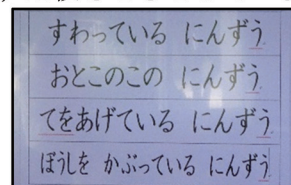 すわっている にんずう
おとこのこの にんずう
てをあげている にんずう
ぼうしを かぶっている にんずう